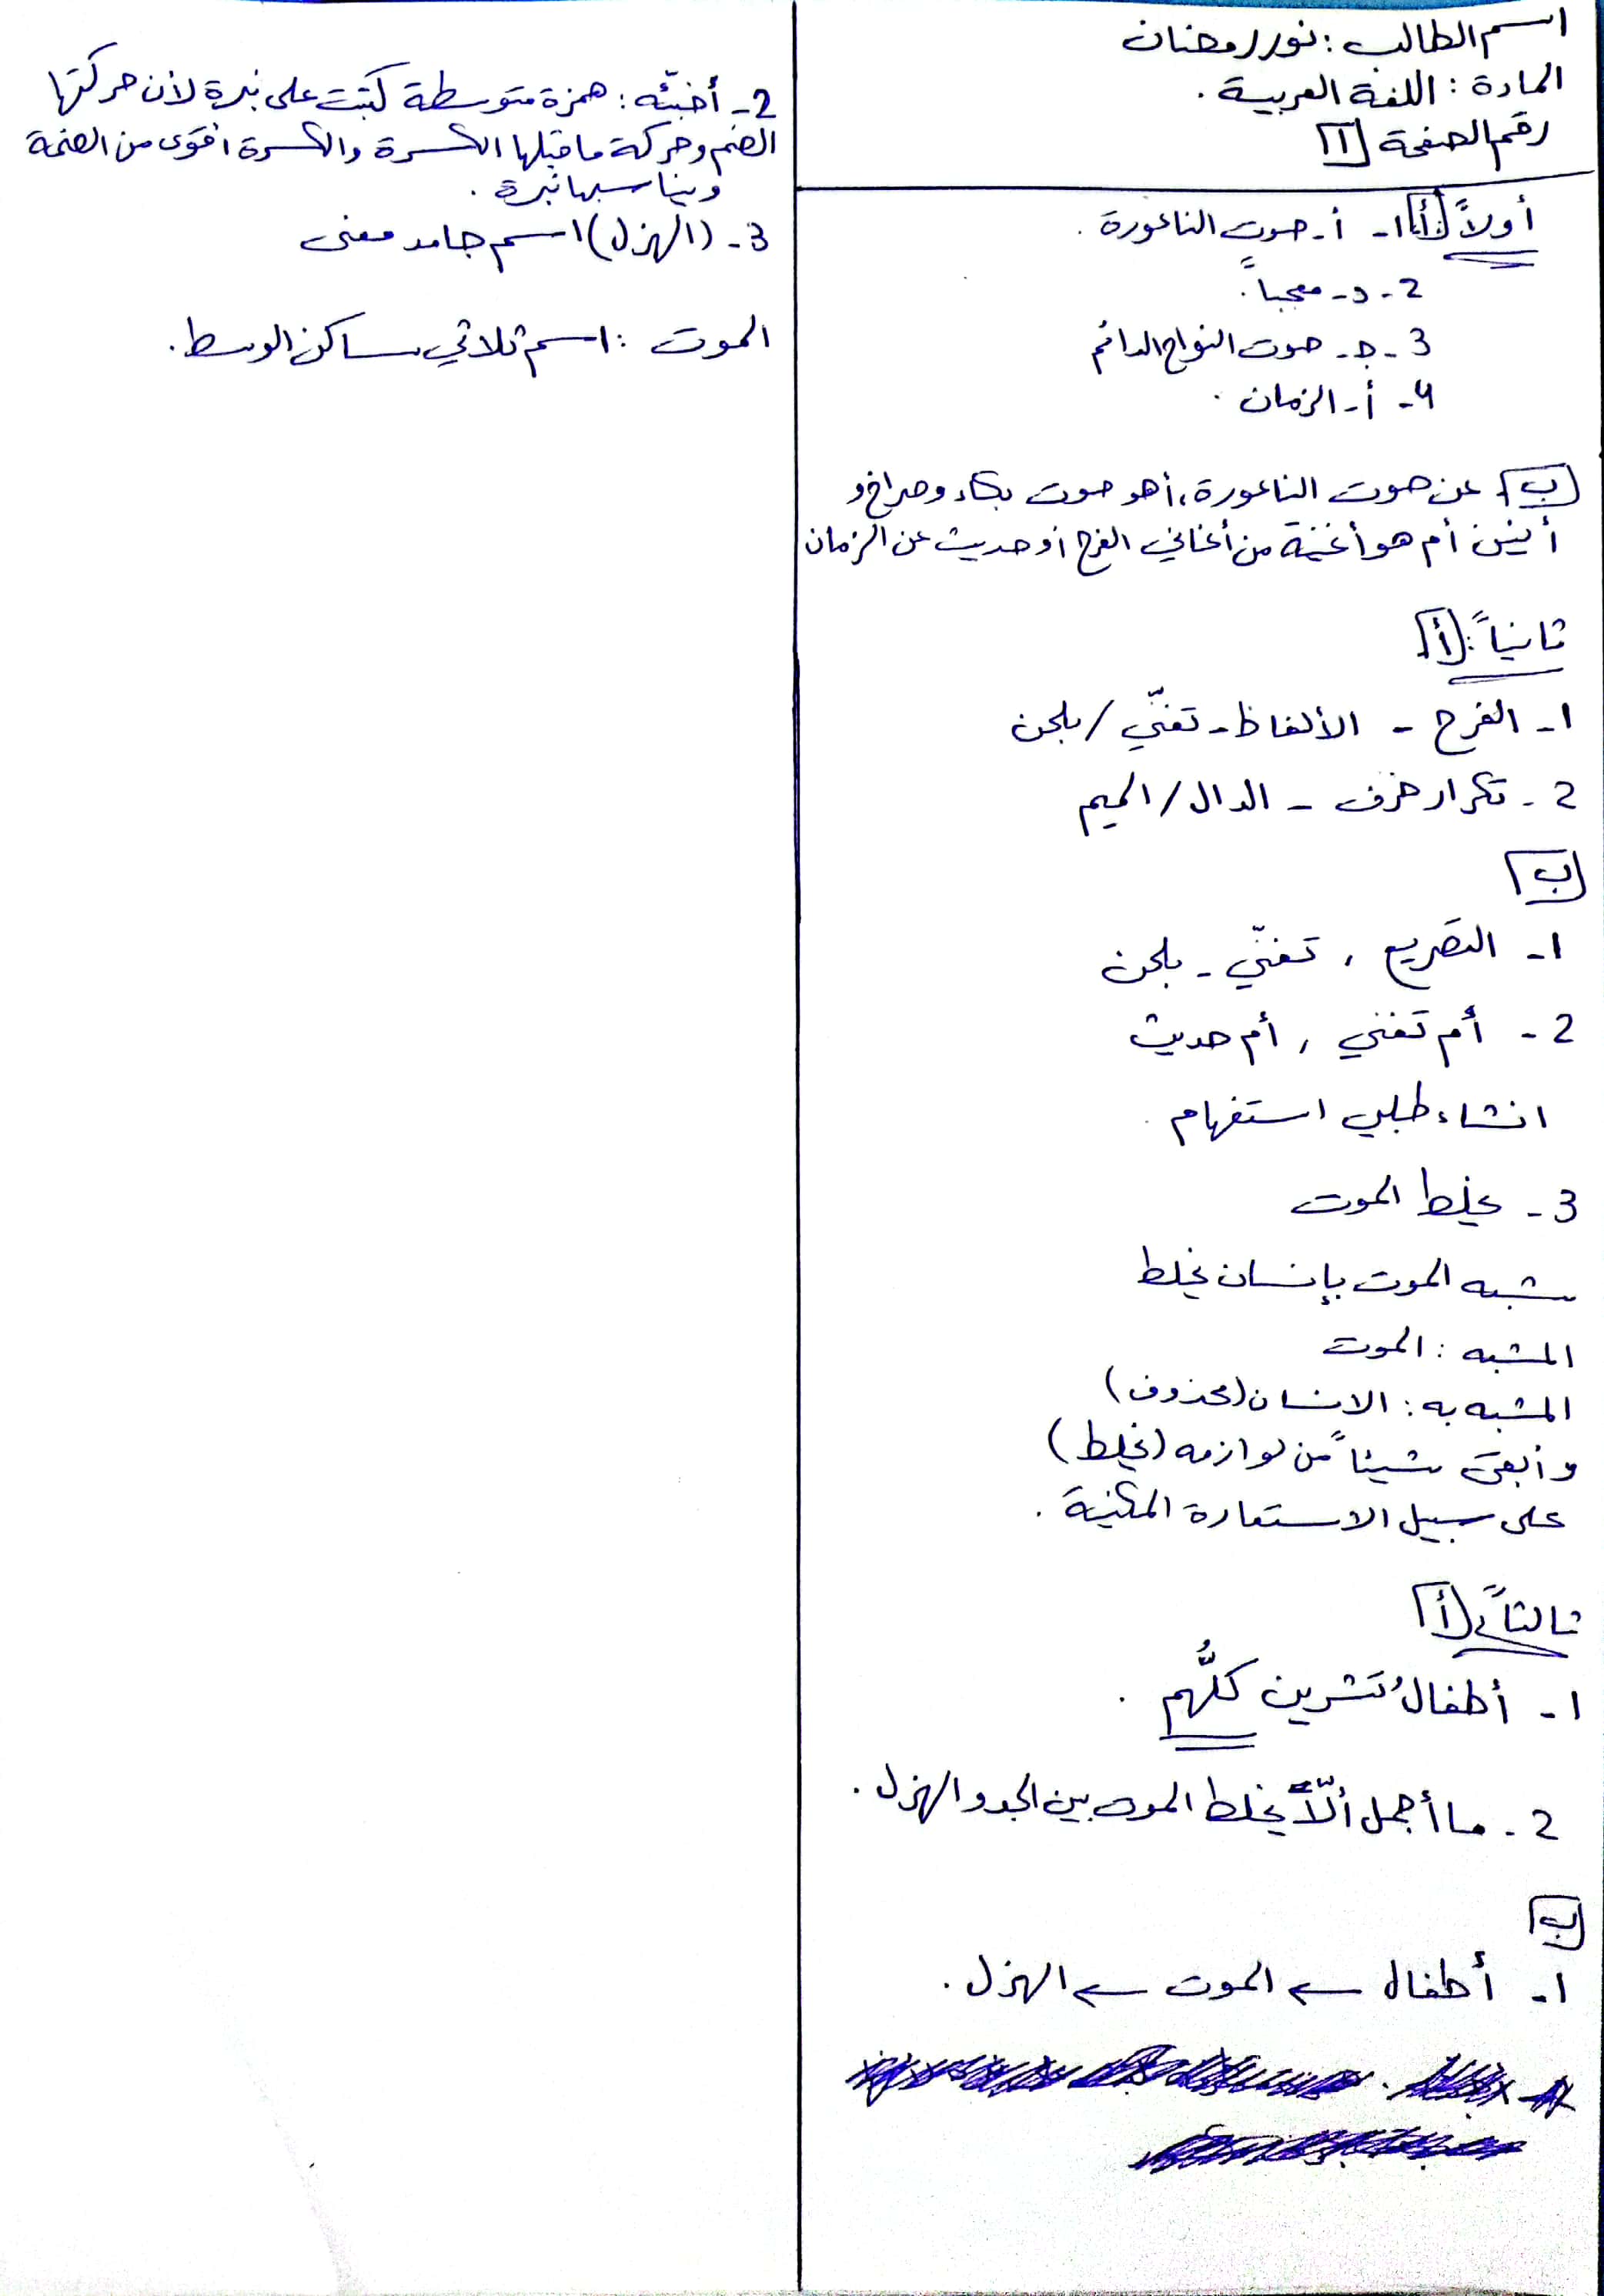 اسم الطالب : نور رمضان
المادة : اللغة العربية .
رقم الصفحة 1
أولاً : أ 1- أ- صوت الناعورة .
2- د- معجباً .
3- جـ- صوت النواح الدائم
4- أ- الزمان .
ب عن صوت الناعورة، أهو صوت بكاء وصراخ و
أنين أم هو أغنية من أغاني الفرح أو حديث عن الزمان
ثانياً : أ
1- الفرح - الألفاظ - تغنّي / بلحن
2- تكرار حرف - الدال / الميم
ب
1- التصريع ، تغنّي - بلحن
2- أم تغني ، أم حديث
انشاء طلبي استفهام .
3- يخلط الموت
شبه الموت بإنسان يخلط
المشبه : الموت
المشبه به : الانسان (محذوف)
وأبقى شيئاً من لوازمه (يخلط)
على سبيل الاستعارة المكنية .
ثالثاً : أ
1- أطفالُ تشرين كلُّهم .
2- ما أجمل ألّا يخلط الموت بين الجد والهزل .
ب
1- أطفال ← الموت ← الهزل .
2- أخبّئه : همزة متوسطة كتبت على نبرة لأن حركتها
الضم وحركة ما قبلها الكسرة والكسرة أقوى من الضمة
ويناسبها نبرة .
3- (الهزل) اسم جامد معنى
الموت : اسم ثلاثي ساكن الوسط .